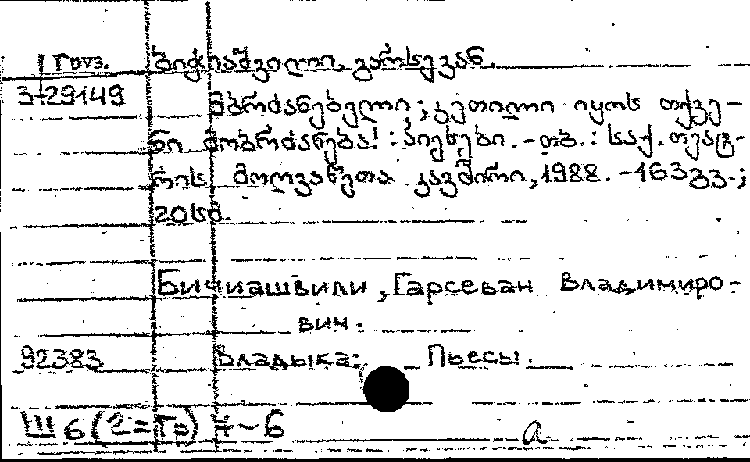 1 груз. ბიჭიაშვილი, გარსევან.
3-29149 მბრძანებელი; კეთილი იყოს თქვე-
ნი მობრძანება! : პიესები. - თბ. : საქ. თეატ-
რის მოღვაწეთა კავშირი, 1988. - 163 გვ.;
20 სმ.
Бичиашвили, Гарсеван Владимиро-
вич.
92383 Владыка: Пьесы.
Ш6(2=Гр)7-6
а